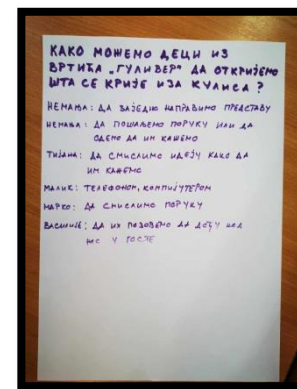 КАКО МОЖЕМО ДЕЦИ ИЗ
ВРТИЋА „ГУЛИВЕР" ДА ОТКРИЈЕМО
ШТА СЕ КРИЈЕ ИЗА КУЛИСА ?
НЕМАЊА: ДА ЗАЈЕДНО НАПРАВИМО ПРЕДСТАВУ
НЕМАЊА: ДА ПОШАЉЕМО ПОРУКУ ИЛИ ДА
ОДЕМО ДА ИМ КАЖЕМО
ТИЈАНА: ДА СМИСЛИМО ИДЕЈУ КАКО ДА
ИМ КАЖЕМО
МАЛИК: ТЕЛЕФОНОМ, КОМПЈУТЕРОМ
МАРКО: ДА СМИСЛИМО ПОРУКУ
ВАСИЛИЈЕ: ДА ИХ ПОЗОВЕМО ДА ДОЂУ КОД
НАС У ГОСТЕ